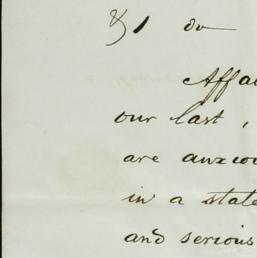 & 1 do
Affai
our last,
are anxiou
in a state
and serious